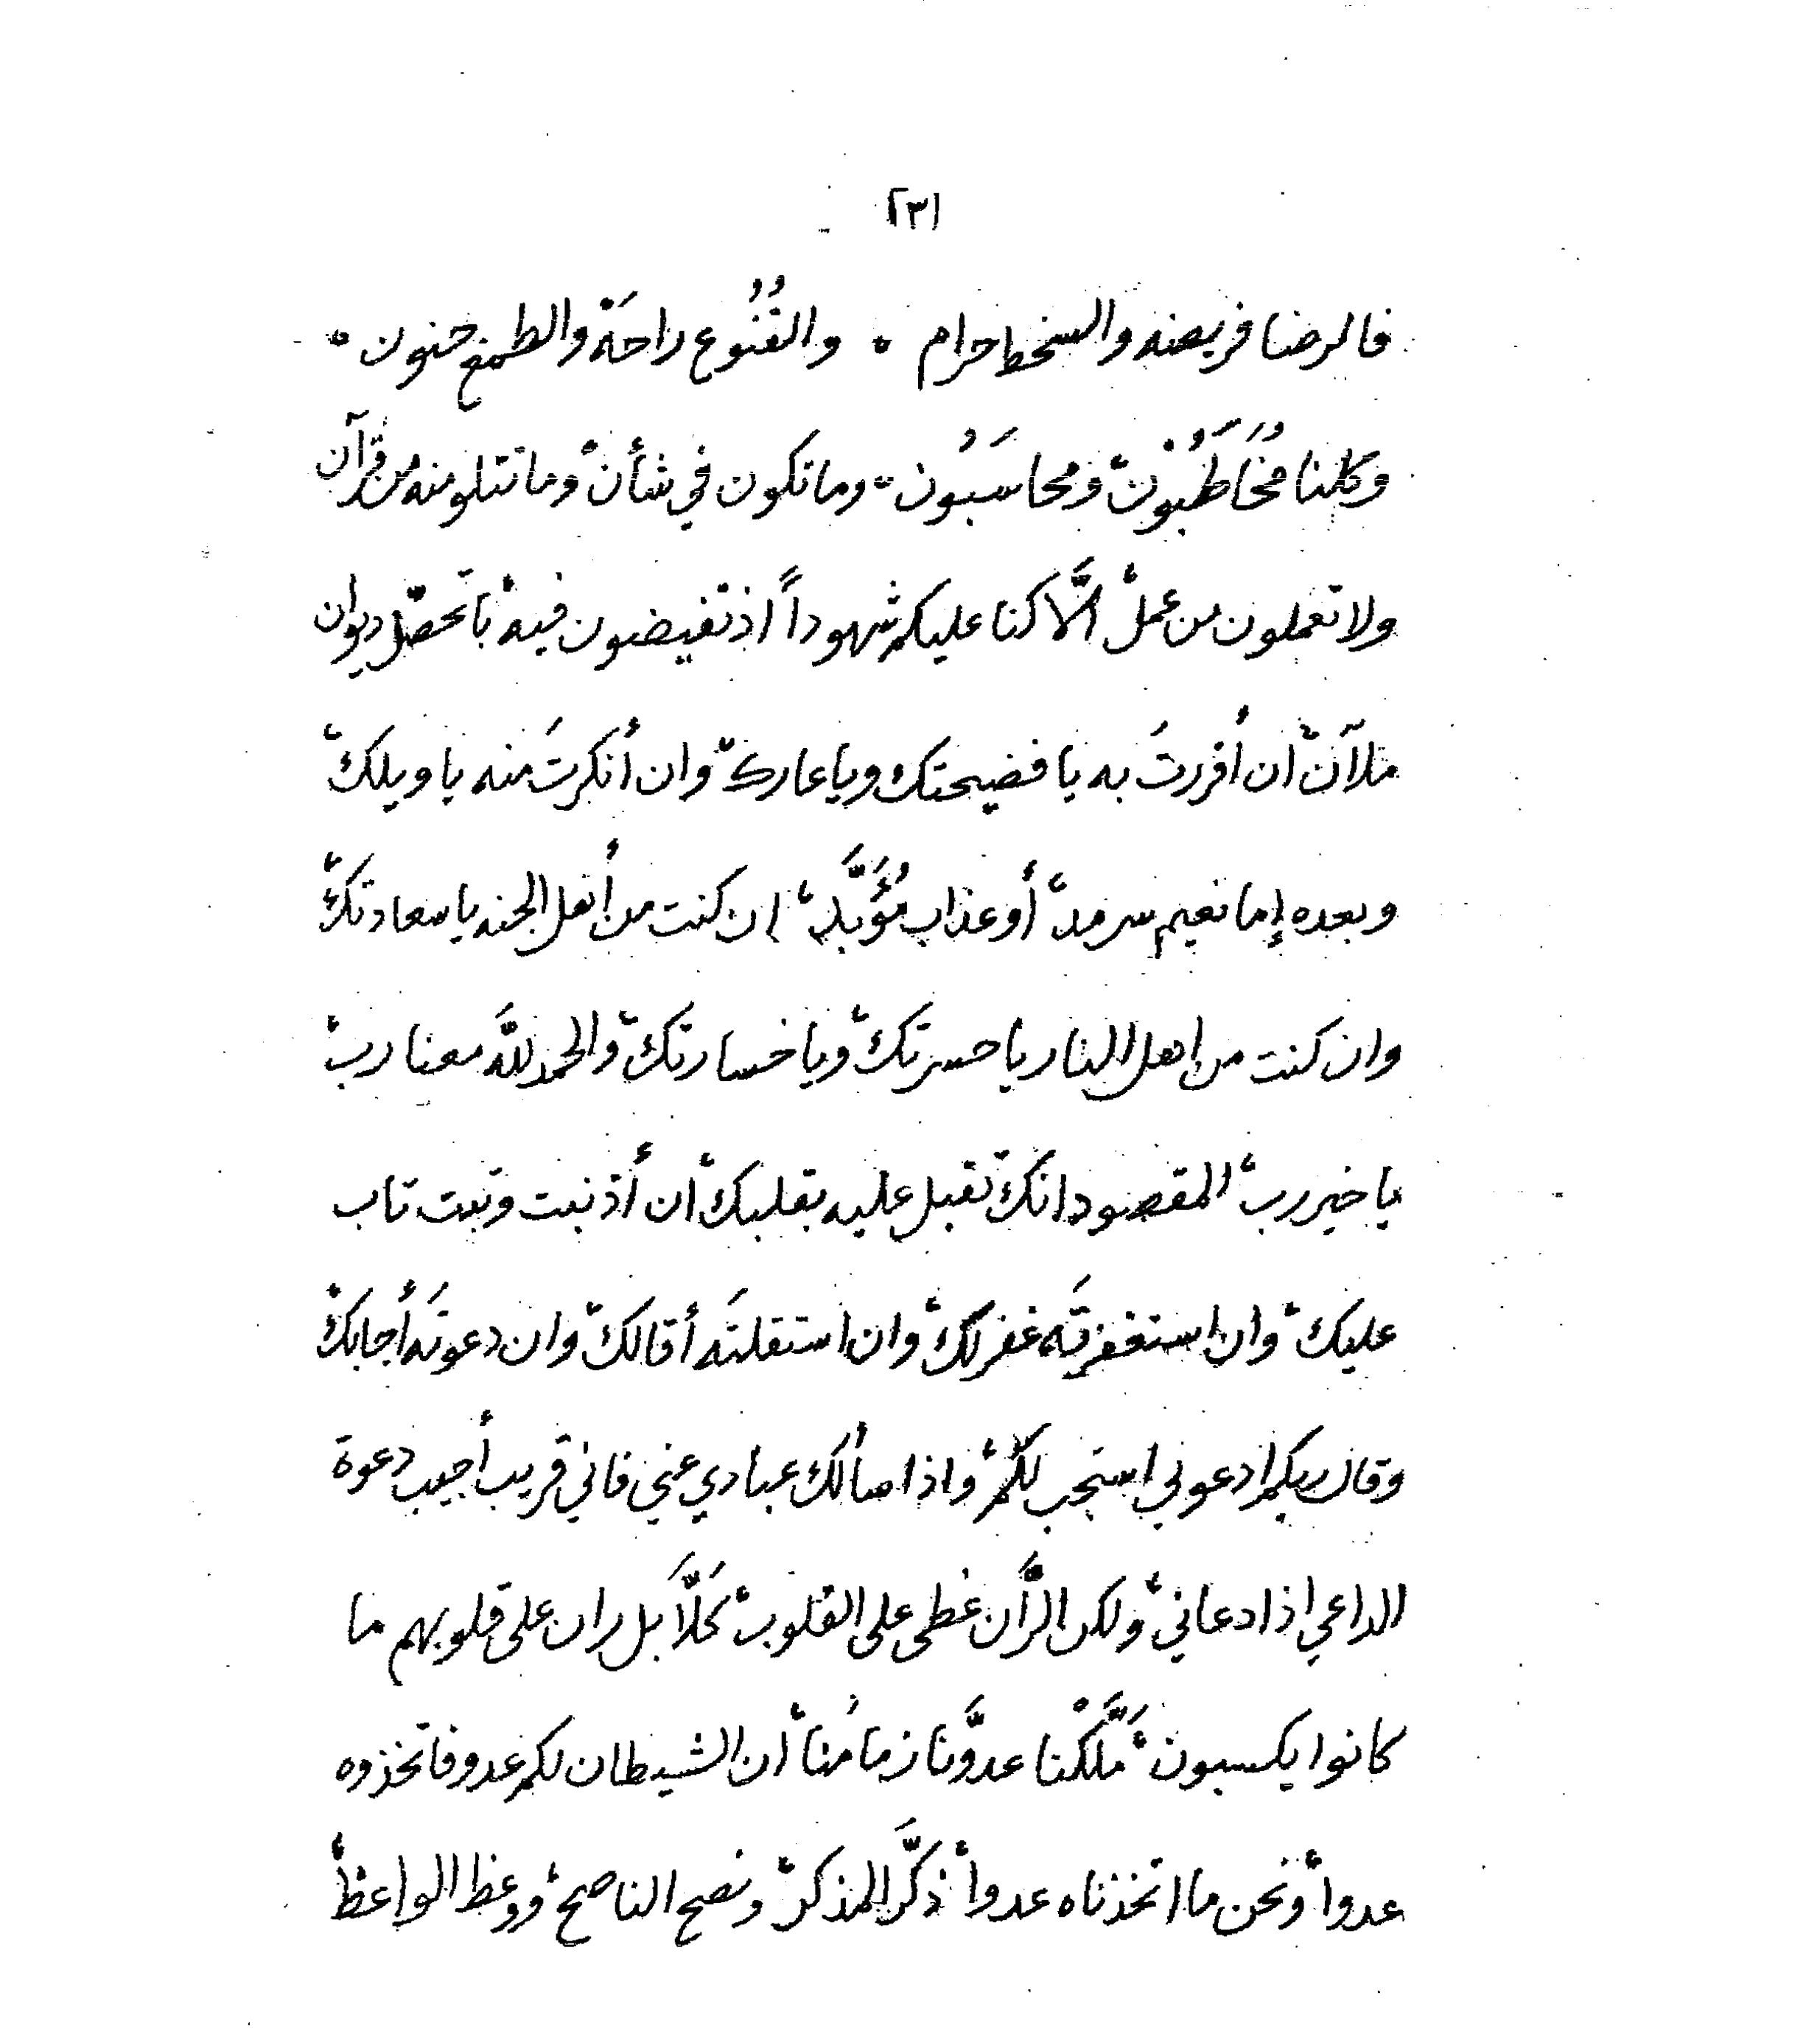 ١٣٢
فالرضا فريضه والسخط حرام ، والقُنُوع راحَة والطمع جنون ،
وكلنا مُخَاطَبُوْن ، ومحاسَبُون ، وما تكون في شأن ، وما تتلو منه من قرآن
ولا تعملون من عمل ، الاَّ كنا عليكم شهوداً اذ تفيضون فيه ، باتحصّل ديوان
ملآن ، ان أقررتَ به يا فضيحتك ويا عارك ، وان أنكرتَ منه يا ويلك ،
وبعده إما نعيم سرمد ، أو عذاب مُؤَبَّد ، ان كنت من أهل الجنه يا سعادتك ،
وان كنت من اهل النار يا حسرتك ، ويا خسارتك ، والحمد للَّه معنا رب ،
يا خير رب ، المقصود انك تقبل عليه بقلبك ، ان أذنبت وتبت تاب
عليك ، وان استغفرتَه غفر لك ، وان استقلتَه أقالك ، وان دعوتَه أجابك ،
وقال ربكم ادعوني استجب لكم ، واذا سألك عبادي عني فاني قريب أجيب دعوة
الداعي اذا دعاني ، ولكن الرَّان غطى على القلوب ، كَلاَّ بل ران على قلوبهم ما
كانوا يكسبون ، مَلَّكْنا عدوَّنا زمامُنا ، ان الشيطان لكم عدو فاتخذوه
عدوا ، ونحن ما اتخذناه عدوا ، ذكَّر المذكر ، ونصح الناصح ، ووعظ الواعظ ،